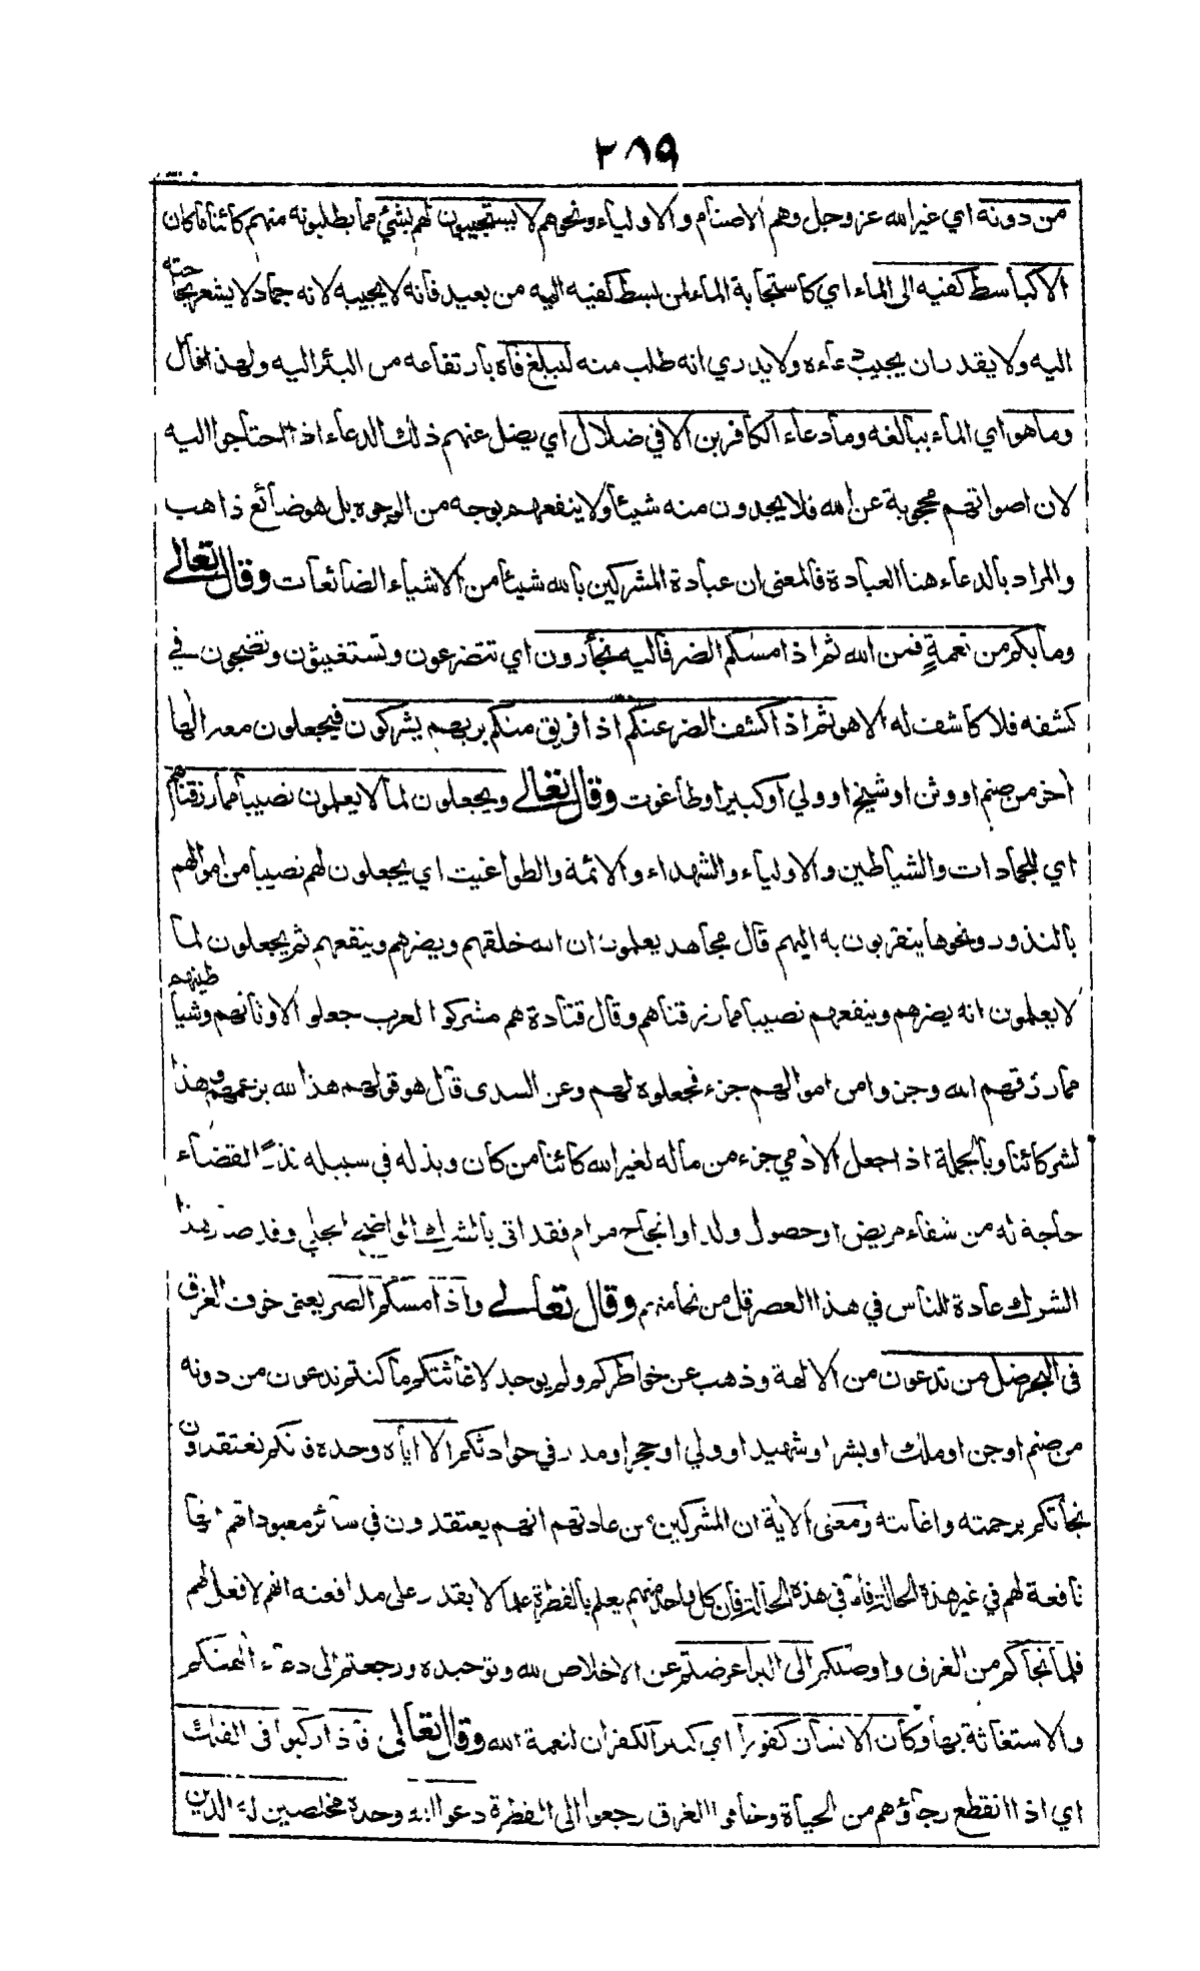 ٢٨٩
من دونه اي غير الله عز وجل وهم الاصنام والاولياء ونحوهم لا يستجيبون لهم بشئي مما يطلبونه منهم كائنا ما كان
الا كباسط كفيه الى الماء اي كاستجابة الماء لمن بسط كفيه اليه من بعيد فانه لا يجيبه لانه جماد لا يشعر بحاجته
اليه ولا يقدر ان يجيب دعاءه ولا يدري انه طلب منه ليبلغ فاه بارتفاعه من البئر اليه ولهذا قال
وما هو اي الماء ببالغه وما دعاء الكافرين الا في ضلال اي يضل عنهم ذلك الدعاء اذا احتاجوا اليه
لان اصواتهم محجوبة عن الله فلا يجدون منه شيئا ولا ينفعهم بوجه من الوجوه بل هو ضائع ذاهب
والمراد بالدعاء هنا العبادة فالمعنى ان عبادة المشركين بالله شيئا من الاشياء الضائعات وقال تعالى
وما بكم من نعمةٍ فمن الله ثم اذا مسكم الضر فاليه تجأرون اي تتضرعون وتستغيثون وتضجون في
كشفه فلا كاشف له الا هو ثم اذا كشف الضر عنكم اذا فريق منكم بربهم يشركون فيجعلون معه الها
اخر من صنم او وثن او شيخ او ولي او كبير او طاغوت وقال تعالى ويجعلون لما لا يعلمون نصيبا مما رزقناهم
اي للجمادات والشياطين والاولياء والشهداء والائمة والطواغيت اي يجعلون لهم نصيبا من اموالهم
بالنذور ونحوها يتقربون به اليهم قال مجاهد يعلمون ان الله خلقهم ويضرهم وينفعهم ثم يجعلون لما
لا يعلمون انه يضرهم وينفعهم نصيبا مما رزقناهم وقال قتادة هم مشركوا العرب جعلوا لاوثانهم وشياطينهم
مما رزقهم الله وجزوا من اموالهم جزء فجعلوه لهم وعن السدى قال هو قولهم هذا لله بزعمهم وهذا
لشركائنا وبالجملة اذا جعل الادمي جزء من ماله لغير الله كائنا من كان وبذله في سبيله نذرًا لقضاء
حاجة له من شفاء مريض او حصول ولد او انجاح مرام فقد اتى بالشرك الواضح الجلي وقد صار هذا
الشرك عادة للناس في هذا العصر قل من نجا منهم وقال تعالى واذا مسكم الضر يعنى خوف الغرق
فى البحر ضل من تدعون من الالهة وذهب عن خواطركم ولم يوجد لاغاثتكم ما كنتم تدعون من دونه
من صنم او جن او ملك او بشر او شهيد او ولي او حجر او مدر في حوادثكم الا اياه وحده فانكم تعتقدون
نجاتكم برحمته واغاثته ومعنى الاية ان المشركين من عادتهم انهم يعتقدون في سائر معبوداتهم انها
نافعة لهم في غير هذه الحالة فاما في هذه الحالة فان كل واحد منهم يعلم بالفطرة علما لا يقدر على مدافعته انهم لا فعل لهم
فلما نجاكم من الغرق واوصلكم الى البر اعرضتم عن الاخلاص لله وتوحيده ورجعتم الى دعاء الهتكم
والاستغاثة بها وكان الانسان كفورا اي كثير الكفران لنعمة الله وقال تعالى فاذا ركبوا فى الفلك
اي اذا انقطع رجاؤهم من الحياة وخافوا الغرق رجعوا الى الفطرة دعوا الله وحده مخلصين له الدين